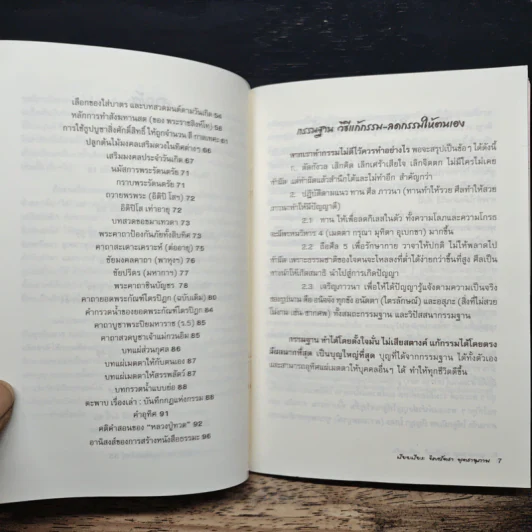 เลือกของใส่บาตร และบทสวดมนต์ตามวันเกิด 54
หลักการทำสังฆทานสด (ของ พระราชสิงห์วิต)
การใช้ธูปบูชาสิ่งศักดิ์สิทธิ์ ให้ถูกจำนวน 61
ปลูกต้นไม้มงคลเสริมดวงในทิศต่างๆ
เสริมมงคลประจำวันเกิด 67
นมัสการพระรัตนตรัย 71
กราบพระรัตนตรัย 71
ถวายพรพระ (อิติปิ โสฯ) 71
อิติปิโส เท่าอายุ 72
บทสวดขอขมาเทวดา 72
พระคาถาป้องกันภัยทั้งสิบทิศ 73
คาถาสะเดาะเคราะห์ (ต่ออายุ) 75
ชัยมงคลคาถา (พาหุงฯ) 75
ชัยปริตร (มหาการฯ) 77
พระคาถาชินบัญชร 78
คาถายอดพระกัณฑ์ไตรปิฎก (ฉบับเดิม) 80
คำกรวดน้ำของยอดพระกัณฑ์ไตรปิฎก 85
คาถาบูชาพระปิยมหาราช (ร.5) 85
คาถาสวดบูชาเจ้าแม่กวนอิม 85
บทแผ่ส่วนกุศล 86
บทแผ่เมตตาให้กับตนเอง 87
บทแผ่เมตตาให้สรรพสัตว์ 87
บทกรวดน้ำแบบย่อ 88
ตะพาบ เรื่องเล่า : บันทึกกฎแห่งกรรม 88
คำอุทิศ 91
คติคำสอนของ "หลวงปู่ทวด" 92
อานิสงส์ของการสร้างหนังสือธรรมะ 96
กรรมฐาน วิธีแก้กรรม-ลดกรรมให้ตนเอง
หากเราทำกรรมไม่ดีไว้ควรทำอย่างไร พอจะสรุปเป็นข้อๆ ได้ดังนี้
1. ตัดกังวล เลิกคิด เลิกเศร้าเสียใจ เลิกจิตตก ไม่มีใครไม่เคย
ทำผิด แต่ทำผิดแล้วสำนึกได้และไม่ทำอีก สำคัญกว่า
2. ปฏิบัติตามแนว ทาน ศีล ภาวนา (ทานทำให้รวย ศีลทำให้สวย
ภาวนาทำให้มีปัญญา)
2.1 ทาน ให้เพื่อลดกิเลสในตัว ทั้งความโลภและความโกรธ
จะมีพรหมวิหาร 4 (เมตตา กรุณา มุทิตา อุเบกขา) มากขึ้น
2.2 ถือศีล 5 เพื่อรักษากาย วาจาให้ปกติ ไม่ให้พลาดไป
ทำผิด เพราะธรรมชาติของใจคนจะไหลลงที่ต่ำได้ง่ายกว่าขึ้นที่สูง ศีลเป็น
ทำให้เกิดสมาธิ นำไปสู่การเกิดปัญญา
2.3 เจริญภาวนา เพื่อให้ได้ปัญญารู้แจ้งตามความเป็นจริง
คือ อนิจจัง ทุกขัง อนัตตา (ไตรลักษณ์) และอสุภะ (สิ่งที่ไม่สวย
ไม่งาม เช่น ซากศพ) ทั้งสมถะกรรมฐาน และวิปัสสนากรรมฐาน
กรรมฐาน ทำได้โดยตั้งใจมั่น ไม่เสียสตางค์ แก้กรรมได้โดยตรง
มีผลมากที่สุด เป็นบุญใหญ่ที่สุด บุญที่ได้จากกรรมฐาน ได้ทั้งตัวเอง
และสามารถอุทิศแผ่เมตตาให้บุคคลอื่นๆ ได้ ทำให้ทุกชีวิตดีขึ้น
เรียบเรียง 7